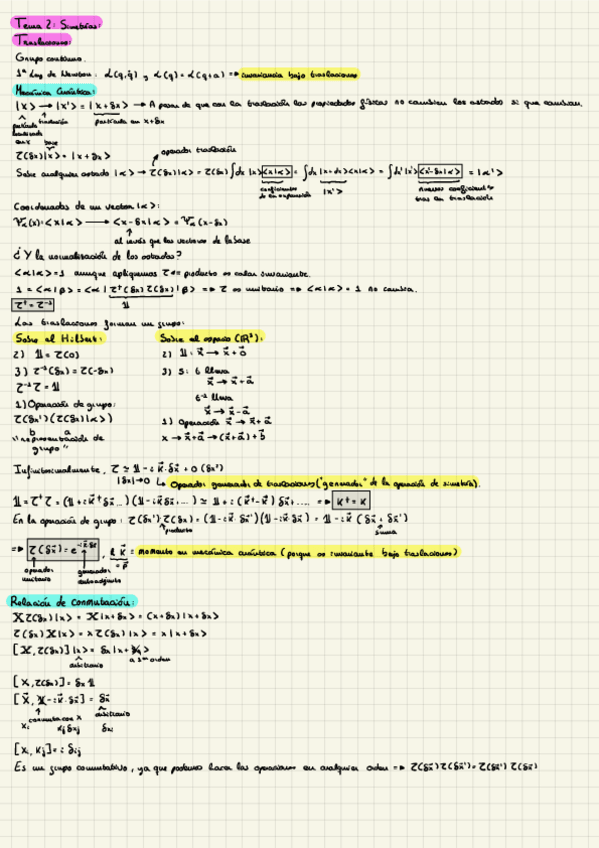 Tema 2: Simetrías:
Traslaciones:
Grupo continuo.
1ª Ley de Newton: L(q,q̇) y L(q) = L(q+a) => invariancia bajo traslaciones
Mecánica Cuántica:
|x> → |x'> = |x+δx> → A pesar de que con la traslación las propiedades físicas no cambien los estados si que cambian.
partícula localizada en x
traslación
partícula en x+δx
base
operador traslación
τ(δx)|x> = |x+δx>
Sobre cualquier estado |α> → τ(δx)|α> = τ(δx)∫dx |x><x|α> = ∫dx |x+δx><x|α> = ∫dx' |x'><x'-δx|α> = |α'>
coeficientes de la expansión
|x'>
nuevos coeficientes tras la traslación
Coordenadas de un vector |α>:
Ψα(x) = <x|α> → <x-δx|α> = Ψα(x-δx)
al revés que los vectores de la base
¿Y la normalización de los estados?
<α|α> = 1 aunque apliquemos τ => producto escalar invariante.
1 = <α|β> = <α|τ†(δx)τ(δx)|β> => τ es unitario => <α|α> = 1 no cambia.
τ† = τ⁻¹
𝟙
Las traslaciones forman un grupo:
Sobre el Hilbert:
Sobre el espacio (ℝ³):
2) 𝟙 = τ(0)
2) 𝟙: x⃗ → x⃗ + 0⃗
3) τ⁻¹(δx) = τ(-δx)
3) S: G lleva
τ⁻¹τ = 𝟙
x⃗ → x⃗ + a⃗
G⁻¹ lleva
x⃗ → x⃗ - a⃗
1) Operación de grupo:
1) Operación x⃗ → x⃗ + a⃗
τ(δx')(τ(δx)|α>)
b a
x → x⃗ + a⃗ → (x⃗ + a⃗) + b⃗
"representación de grupo"
Infinitesimalmente, τ ≃ 𝟙 - iK⃗·δx⃗ + O(δx²)
|δx|→0
Operador generador de traslaciones ("generador" de la operación de simetría).
𝟙 = τ†τ = (𝟙 + iK⃗†δx⃗ ...)(𝟙 - iK⃗δx⃗ + ...) ≃ 𝟙 + i(K⃗† - K⃗)δx⃗ + .... => K† = K
En la operación de grupo: τ(δx⃗')τ(δx⃗) = (𝟙 - iK⃗·δx⃗')(𝟙 - iK⃗·δx⃗) = 𝟙 - iK⃗(δx⃗ + δx⃗')
producto
suma
=> τ(δx⃗) = e^(-iK⃗·δx⃗), ħK⃗ = momento en mecánica cuántica (porque es invariante bajo traslaciones)
operador unitario
generador autoadjunto
= p⃗
Relación de conmutación:
X τ(δx)|x> = X|x+δx> = (x+δx)|x+δx>
τ(δx)X|x> = xτ(δx)|x> = x|x+δx>
[X, τ(δx)]|x> = δx|x+δx>
arbitrario
a 1er orden
[X, τ(δx)] = δx 𝟙
[X⃗, 𝟙 - iK⃗·δx⃗] = δx⃗
conmuta con X
arbitrario
xᵢ
Kⱼδxⱼ
δxᵢ
[xᵢ, Kⱼ] = iδᵢⱼ
Es un grupo conmutativo, ya que podemos hacer las operaciones en cualquier orden => τ(δx⃗)τ(δx⃗') = τ(δx⃗')τ(δx⃗)